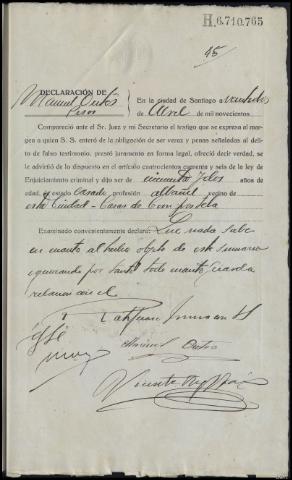 H.6.710.765
45
DECLARACIÓN DE
Manuel Outes
En la ciudad de Santiago a veintidos
de Abril de mil novecientos.
Compareció ante el Sr. Juez y mi Secretario el testigo que se expresa al mar-
gen a quien S. S. enteró de la obligación de ser veraz y penas señaladas al de-
lito de falso testimonio, prestó juramento en forma legal, ofreció decir verdad, se
le advirtió de lo dispuesto en el artículo cuatrocientos cuarenta y seis de la ley de
Enjuiciamiento criminal y dijo ser de cincuenta y dos años de
edad, y estado casado profesión albañil vecino de
esta Ciudad-Casas de Compostela
Examinado convenientemente declara: Que nada sabe
en cuanto al hecho objeto de este sumario
ignorando por tanto todo cuanto pueda
relacionarse con el
Manuel Outes
Vicente